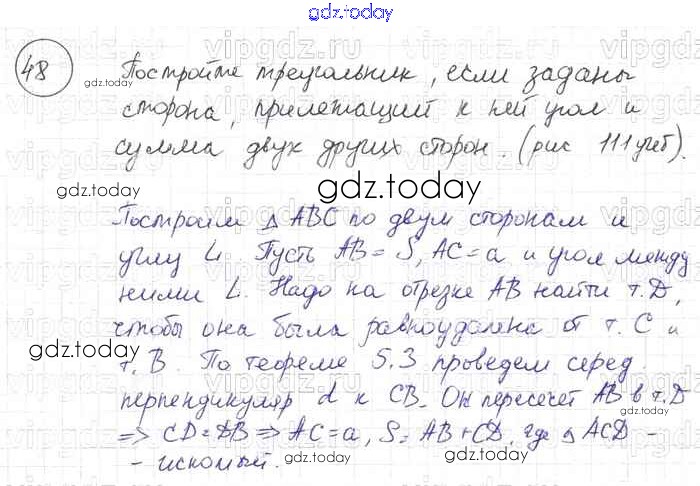 gdz.today
48 Постройте треугольник, если заданы
сторона, прилежащий к ней угол и
сумма двух других сторон. (рис 111 учеб).
gdz.today
gdz.today
gdz.today
Построим △ ABC по двум сторонам и
углу L. Пусть AB = S, AC = a и угол между
ними L. Надо на отрезке AB найти т. D,
чтобы она была равноудалена от т. C и
gdz.today
т. B. По теореме 5.3 проведем серед.
перпендикуляр d к CB. Он пересечет AB в т. D
=> CD = DB => AC = a, S = AB + CD, где △ ACD -
- искомый.
gdz.today